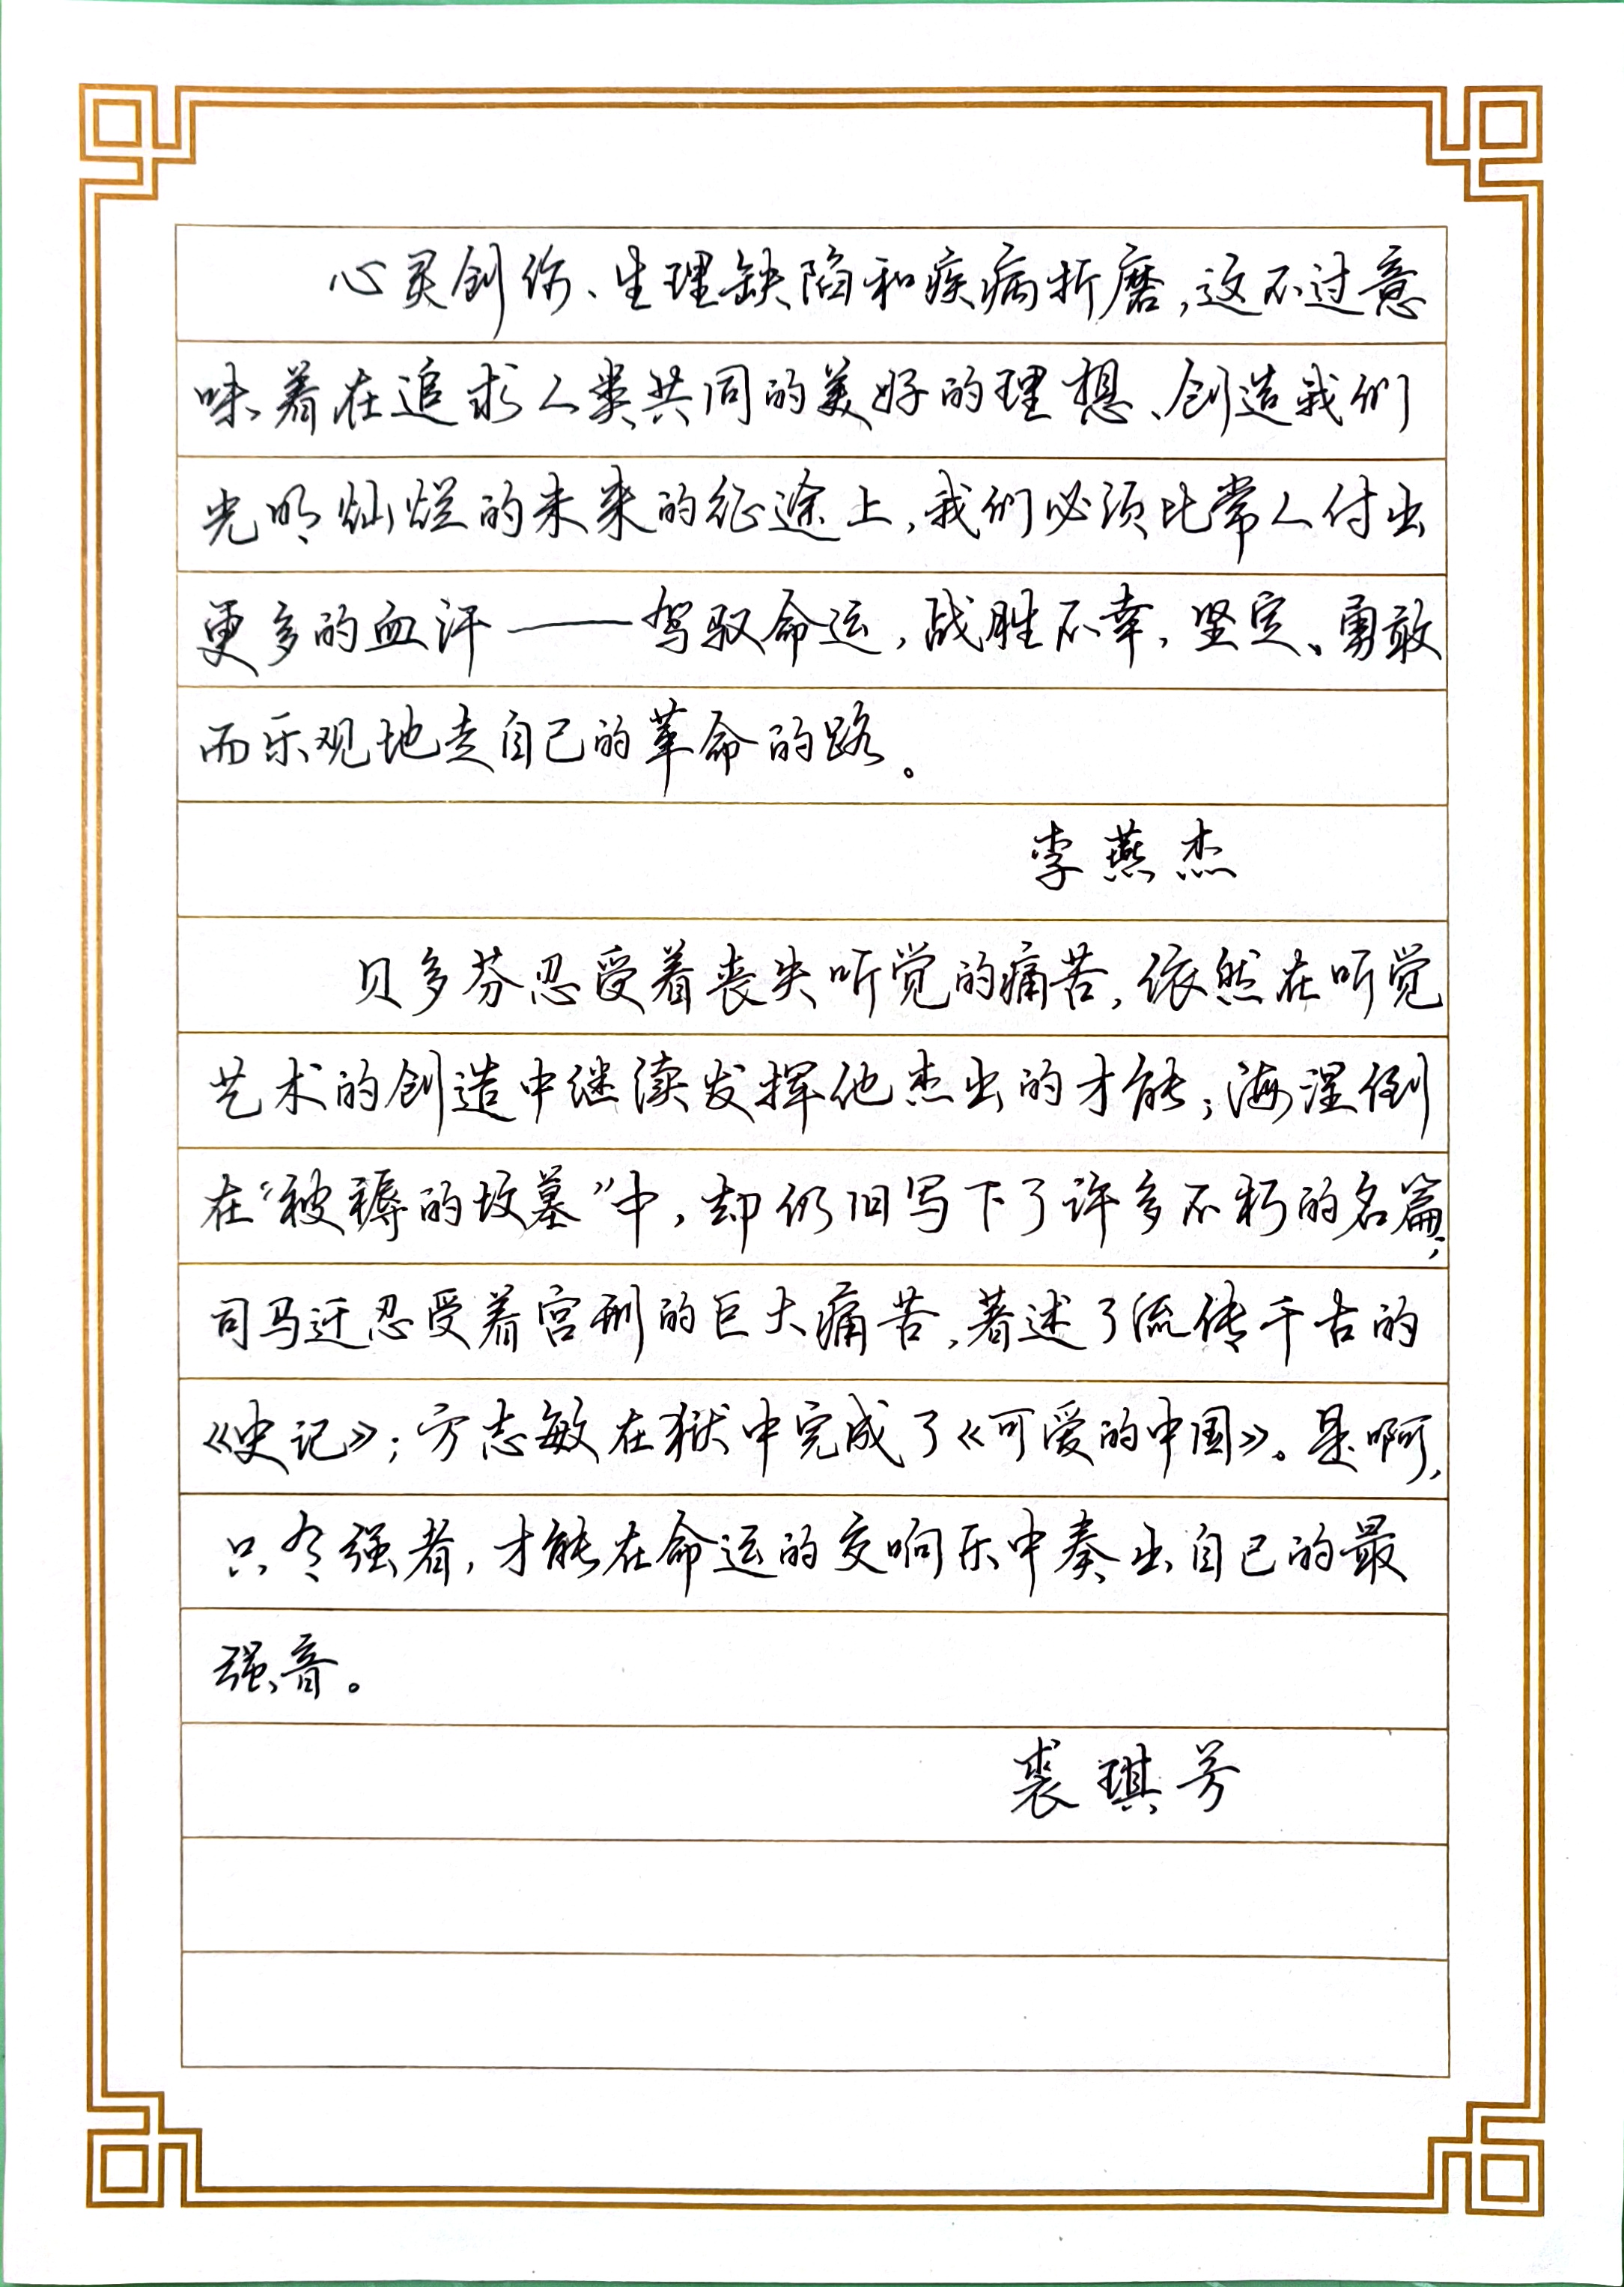 心灵创伤、生理缺陷和疾病折磨,这不过意
味着在追求人类共同的美好的理想、创造我们
光明灿烂的未来的征途上,我们必须比常人付出
更多的血汗——驾驭命运,战胜不幸,坚定、勇敢
而乐观地走自己的革命的路。
李燕杰
贝多芬忍受着丧失听觉的痛苦,依然在听觉
艺术的创造中继续发挥他杰出的才能;海涅倒
在“被褥的坟墓”中,却仍旧写下了许多不朽的名篇;
司马迁忍受着宫刑的巨大痛苦,著述了流传千古的
《史记》;方志敏在狱中完成了《可爱的中国》。是啊,
只有强者,才能在命运的交响乐中奏出自己的最
强音。
裘琪芳